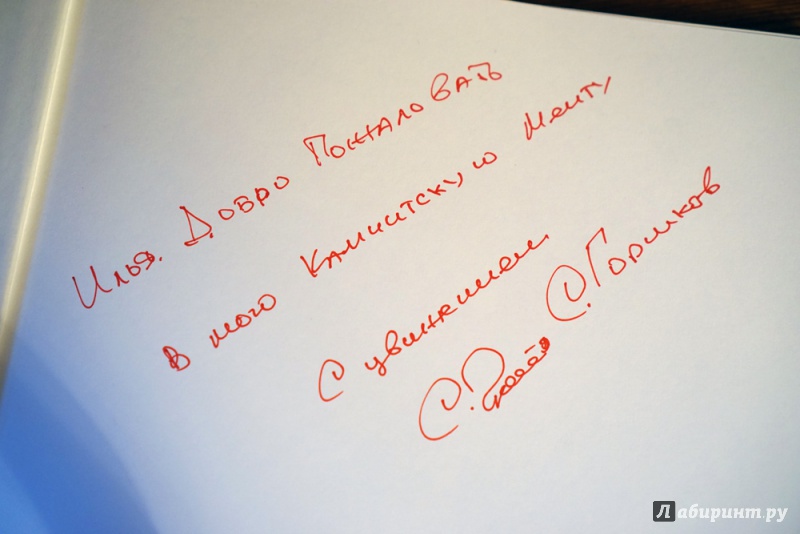 Илья. Добро Пожаловать
в мою Камчатскую Мечту
С уважением,
С. Горшков
Лабиринт.ру